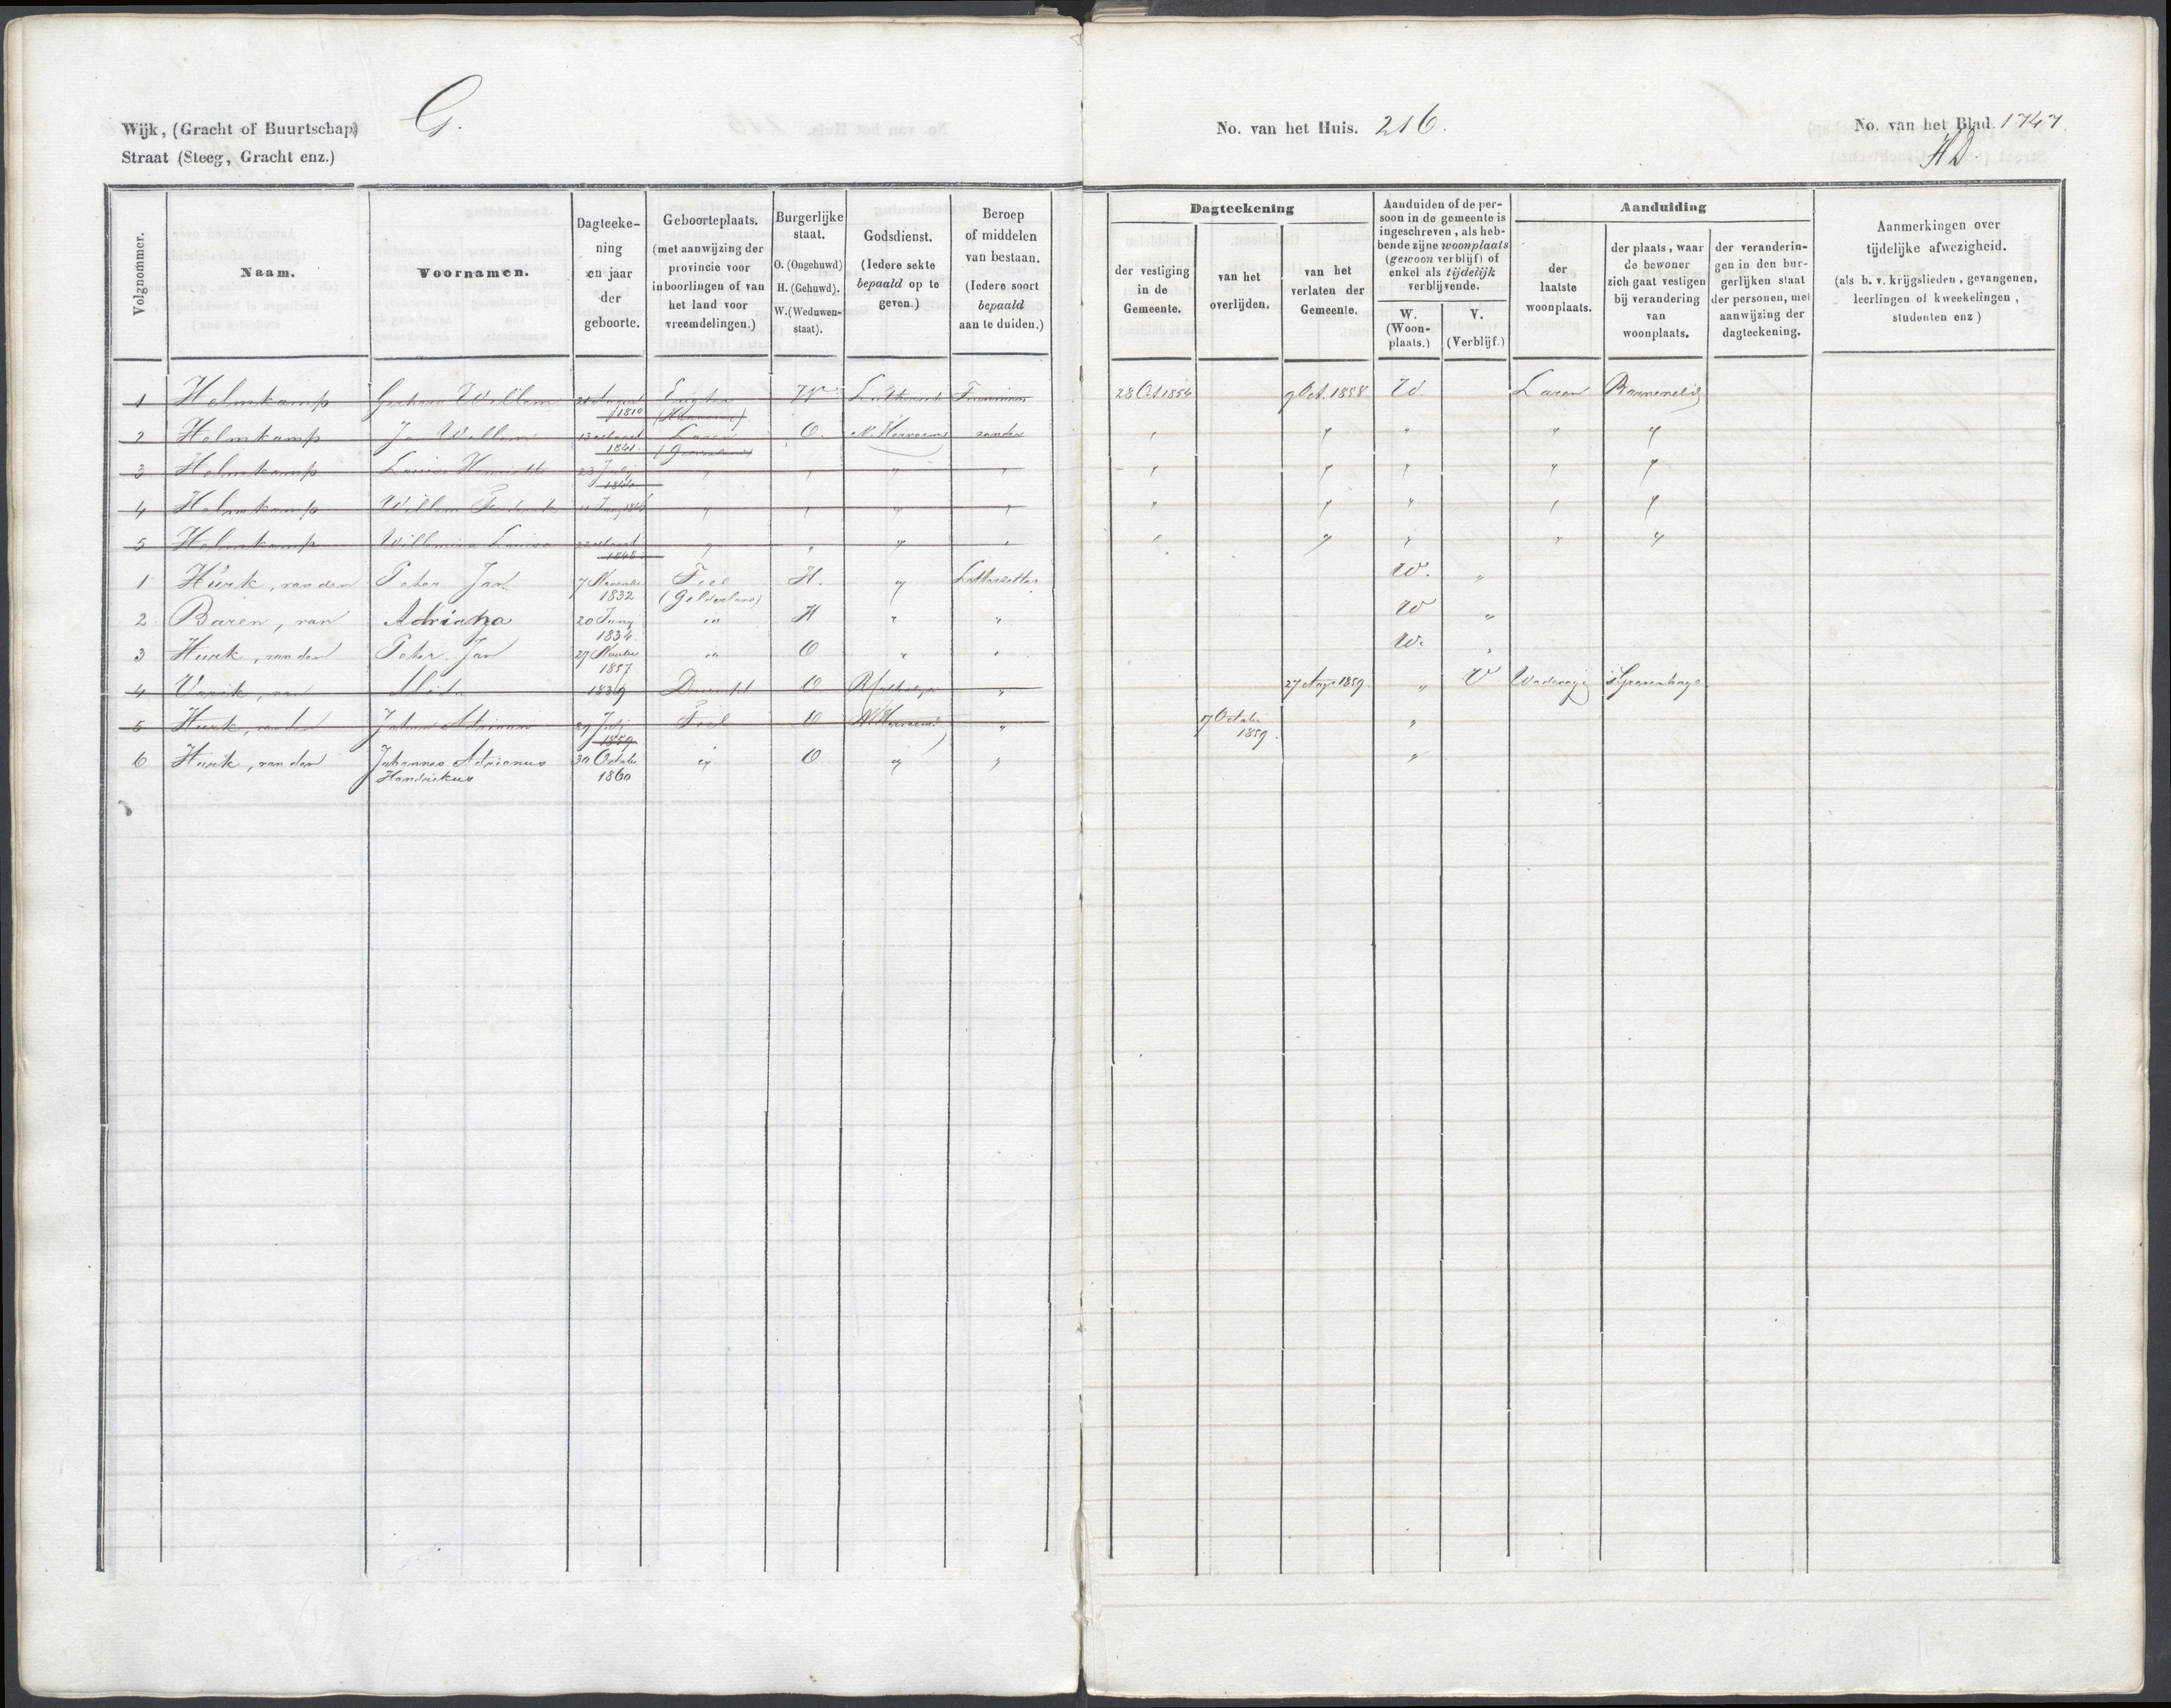 Wijk, (Gracht of Buurtschap) G.
Straat (Steeg, Gracht enz.)
No. van het Huis. 216.
No. van het Blad 1747.
HD.
Volgnommer.
Naam.
Voornamen.
Dagteeke-
ning
en jaar
der
geboorte.
Geboorteplaats.
(met aanwijzing der
provincie voor
inboorlingen of van
het land voor
vreemdelingen.)
Burgerlijke
staat.
O. (Ongehuwd)
H. (Gehuwd).
W. (Weduwen-
staat).
Godsdienst.
(Iedere sekte
bepaald op te
geven.)
Beroep
of middelen
van bestaan.
(Iedere soort
bepaald
aan te duiden.)
Dagteekening
der vestiging
in de
Gemeente.
van het
overlijden.
van het
verlaten der
Gemeente.
Aanduiden of de per-
soon in de gemeente is
ingeschreven, als heb-
bende zijne woonplaats
(gewoon verblijf) of
enkel als tijdelijk
verblijvende.
W.
(Woon-
plaats.)
V.
(Verblijf.)
Aanduiding
der
laatste
woonplaats.
der plaats, waar
de bewoner
zich gaat vestigen
bij verandering
van
woonplaats.
der veranderin-
gen in den bur-
gerlijken staat
der personen, met
aanwijzing der
dagteekening.
Aanmerkingen over
tijdelijke afwezigheid.
(als b. v. krijgslieden, gevangenen,
leerlingen of kweekelingen,
studenten enz)
1 Holmkamp Gerhard Willem 21 August Engter W Luthersch 28 Oct 1854 9 Oct. 1858 W. Laren Barneveld
1810 (Hannover)
2 Holmkamp Jan Willem 13 Maart Laren O. N. Hervormd zonder " " " " "
1841. (Gelderland)
3 Holmkamp Louisa Henriette 23 Julij " " " " " " " " "
4 Holmkamp Willem Frederik " " " " " " " " "
5 Holmkamp Willemina Louisa 22 Maart " " " " " " " " "
1848
1 Hurk, van den Peter Jan 7 Novemb Tiel H. " Letterzetter W. "
1832 (Gelderland)
2. Baren, van Adriana 20 Juny " H " " W "
1834.
3 Hurk, van den Peter Jan 27 " O " " W. "
1857
4 van Alida 1839 Dreumpt O " 27 Aug 1859. " V Wadenoyen 'sGravenhage
5 Hurk, van den 29 Julij Tiel O N Hervormd " 17 Octobr "
1859 1859.
6 Hurk, van den Johannes Adrianus 30 Octobr " O " " "
Hendrikus 1860